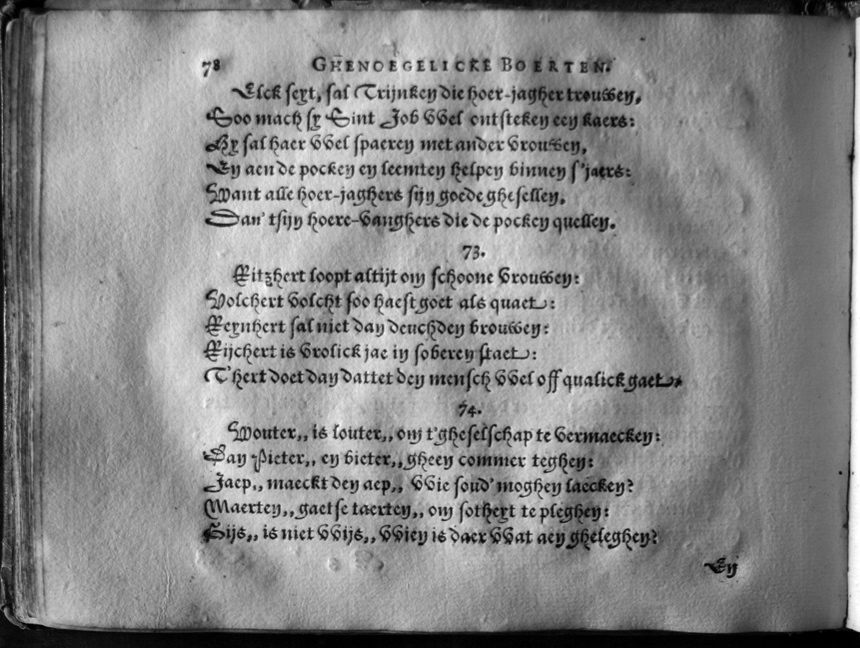 78 GHENOEGELICKE BOERTEN.
Elck seyt, sal Trijnken die hoer-jagher trouwen,
Soo mach sy Sint Job wel ontsteken een kaers:
Hy sal haer wel spaeren met ander vrouwen,
En aen de pocken en leemten helpen binnen s'jaers:
Want alle hoer-jaghers sijn goede ghesellen,
Dan' tsijn hoere-vanghers die de pocken quellen.
73.
Ritzhert loopt altijt om schoone vrouwen:
Volchert volcht soo haest goet als quaet:
Reynhert sal niet dan deuchden brouwen:
Rijchert is vrolick jae in soberen staet:
T'hert doet dan dattet den mensch wel off qualick gaet.
74.
Wouter,, is louter,, om t'gheselschap te vermaecken:
Van Pieter,, en bieter,, gheen commer teghen:
Jaep,, maeckt den aep,, wie soud' moghen laecken?
Maerten,, gaet se taerten,, om sotheyt te pleghen:
Gijs,, is niet wijs,, wien is daer wat aen gheleghen?
En